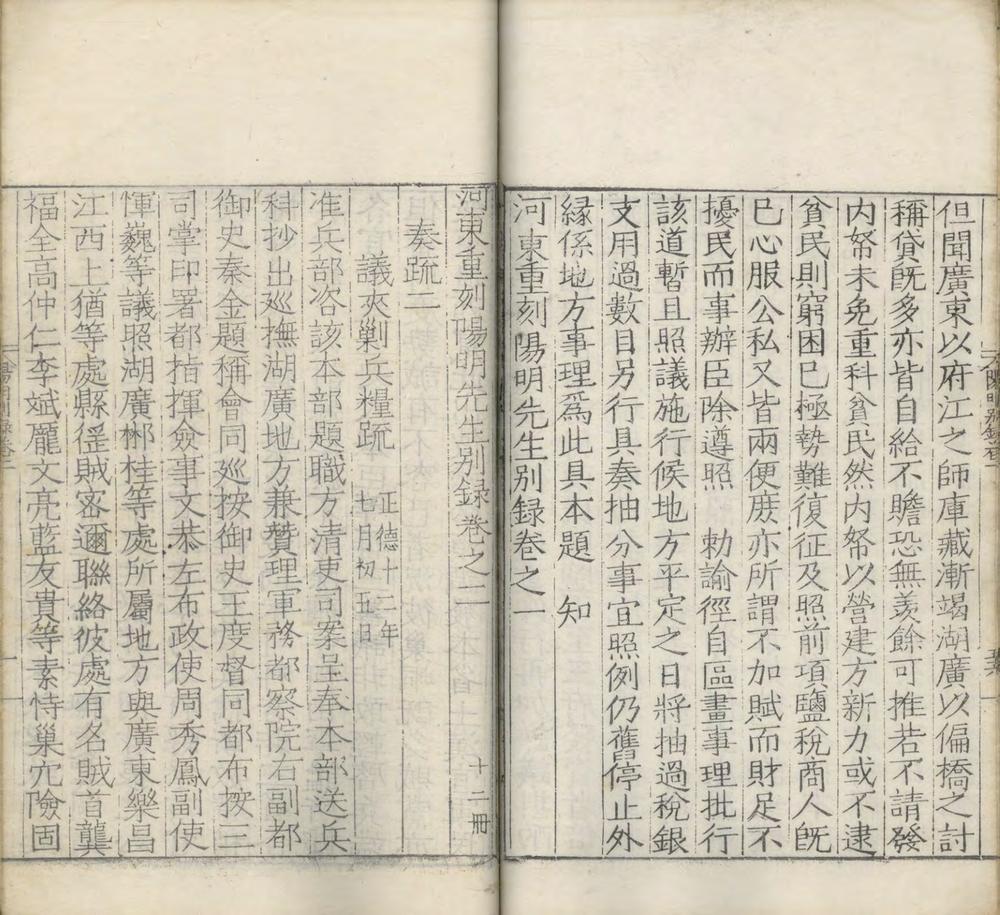 但聞廣東以府江之師庫藏漸竭湖廣以偏橋之討
稱貸旣多亦皆自給不贍恐無羨餘可推若不請發
内帑未免重科貧民然内帑以營建方新力或不逮
貧民則窮困已極勢難復征及照前項鹽稅商人旣
已心服公私又皆兩便庶亦所謂不加賦而財足不
擾民而事辦臣除遵照 勅諭徑自區畫事理批行
該道暫且照議施行候地方平定之日將抽過稅銀
支用過數目另行具奏抽分事宜照例仍舊停止外
緣係地方事理爲此具本題 知
河東重刻陽明先生別録卷之一
河東重刻陽明先生別録卷之二 十二冊
奏疏二
議夾剿兵糧疏 正德十二年
七月初五日
准兵部咨該本部題職方清吏司案呈奉本部送兵
科抄出巡撫湖廣地方兼贊理軍務都察院右副都
御史秦金題稱會同巡按御史王度督同都布按三
司掌印署都指揮僉事文恭左布政使周秀鳳副使
惲巍等議照湖廣郴桂等處所屬地方與廣東樂昌
江西上猶等處縣徭賊密邇聯絡彼處有名賊首龔
福全高仲仁李斌龎文亮藍友貴等素恃巢穴險固